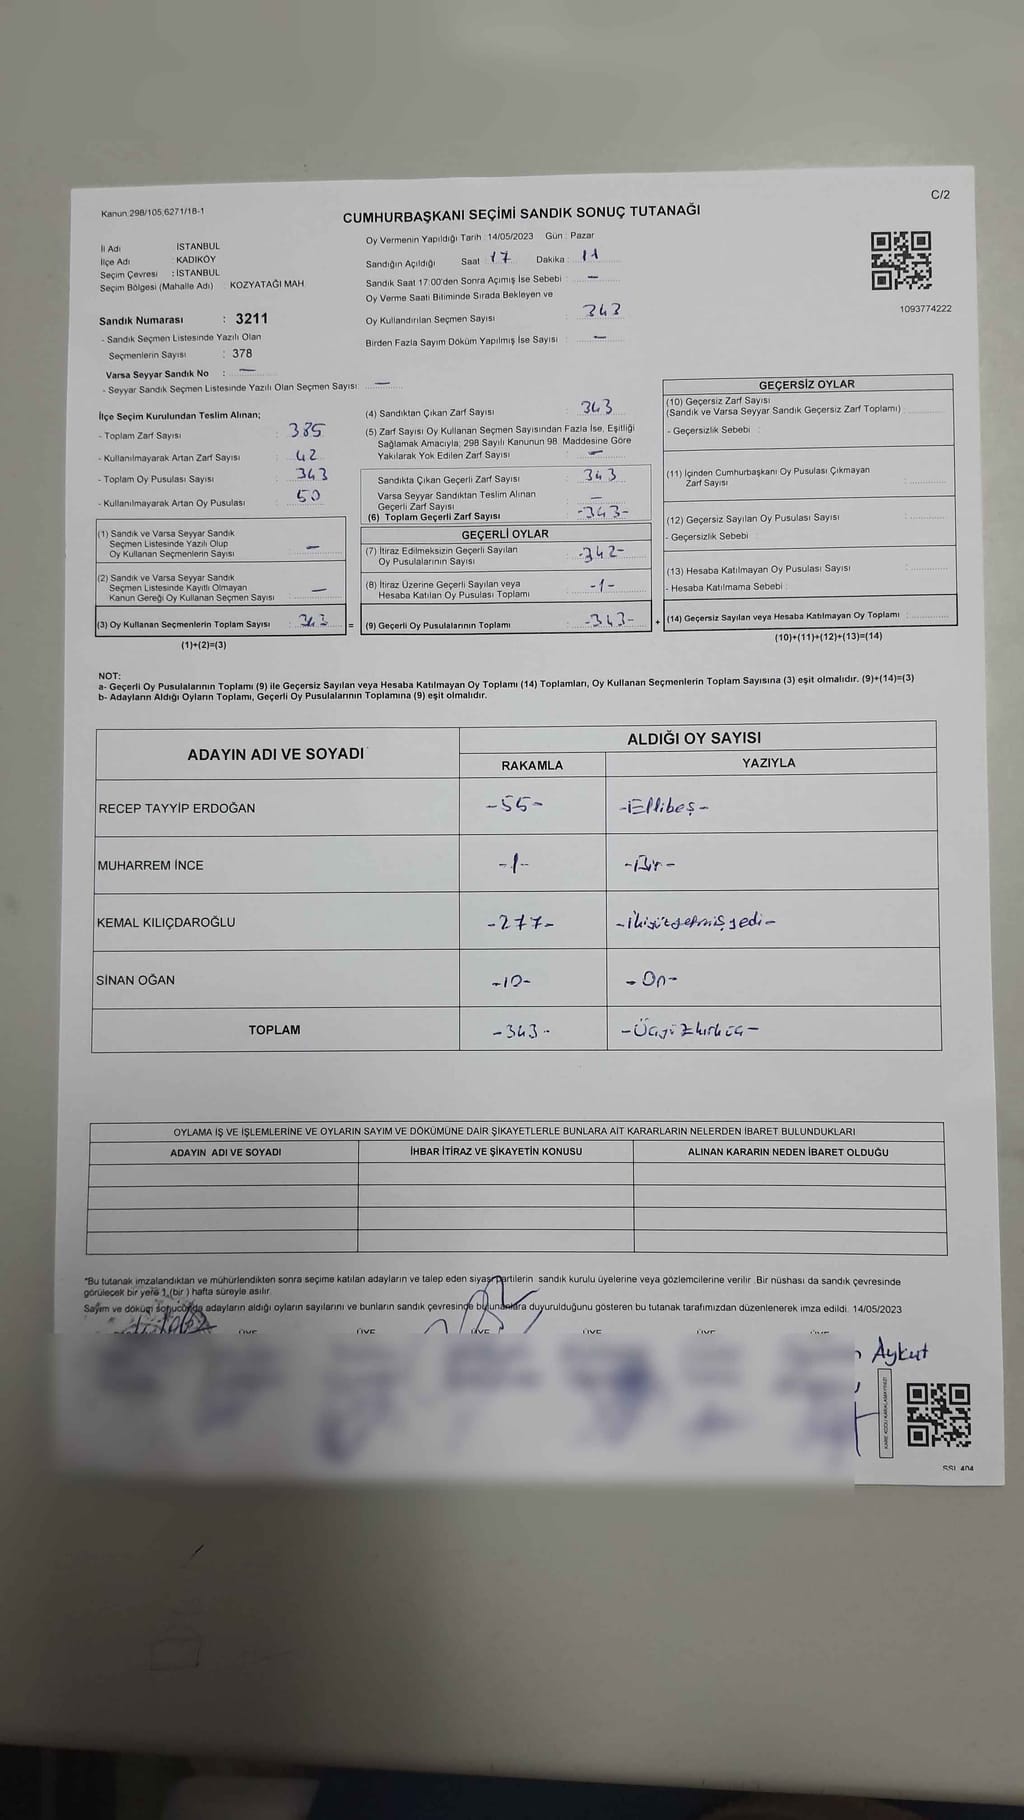 Kanun:298/105,6271/18-1
C/2
CUMHURBAŞKANI SEÇİMİ SANDIK SONUÇ TUTANAĞI
İl Adı : İSTANBUL
İlçe Adı : KADIKÖY
Seçim Çevresi : İSTANBUL
Seçim Bölgesi (Mahalle Adı) : KOZYATAĞI MAH.
Sandık Numarası : 3211
- Sandık Seçmen Listesinde Yazılı Olan
Seçmenlerin Sayısı : 378
Varsa Seyyar Sandık No : —
- Seyyar Sandık Seçmen Listesinde Yazılı Olan Seçmen Sayısı : —
Oy Vermenin Yapıldığı Tarih : 14/05/2023 Gün : Pazar
Sandığın Açıldığı Saat : 17 Dakika : 11
Sandık Saat 17:00'den Sonra Açımış İse Sebebi : —
Oy Verme Saati Bitiminde Sırada Bekleyen ve
Oy Kullandırılan Seçmen Sayısı : 343
Birden Fazla Sayım Döküm Yapılmış İse Sayısı : —
1093774222
İlçe Seçim Kurulundan Teslim Alınan;
- Toplam Zarf Sayısı : 385
- Kullanılmayarak Artan Zarf Sayısı : 42
- Toplam Oy Pusulası Sayısı : 343
- Kullanılmayarak Artan Oy Pusulası : 50
(1) Sandık ve Varsa Seyyar Sandık
Seçmen Listesinde Yazılı Olup
Oy Kullanan Seçmenlerin Sayısı : —
(2) Sandık ve Varsa Seyyar Sandık
Seçmen Listesinde Kayıtlı Olmayan
Kanun Gereği Oy Kullanan Seçmen Sayısı : —
(3) Oy Kullanan Seçmenlerin Toplam Sayısı : 343 =
(1)+(2)=(3)
(4) Sandıktan Çıkan Zarf Sayısı : 343
(5) Zarf Sayısı Oy Kullanan Seçmen Sayısından Fazla İse, Eşitliği
Sağlamak Amacıyla; 298 Sayılı Kanunun 98. Maddesine Göre
Yakılarak Yok Edilen Zarf Sayısı : —
Sandıkta Çıkan Geçerli Zarf Sayısı : 343
Varsa Seyyar Sandıktan Teslim Alınan
Geçerli Zarf Sayısı : —
(6) Toplam Geçerli Zarf Sayısı : -343-
GEÇERLİ OYLAR
(7) İtiraz Edilmeksizin Geçerli Sayılan
Oy Pusulalarının Sayısı : -342-
(8) İtiraz Üzerine Geçerli Sayılan veya
Hesaba Katılan Oy Pusulası Toplamı : -1-
(9) Geçerli Oy Pusulalarının Toplamı : -343- +
GEÇERSİZ OYLAR
(10) Geçersiz Zarf Sayısı
(Sandık ve Varsa Seyyar Sandık Geçersiz Zarf Toplamı) :
- Geçersizlik Sebebi :
(11) İçinden Cumhurbaşkanı Oy Pusulası Çıkmayan
Zarf Sayısı :
(12) Geçersiz Sayılan Oy Pusulası Sayısı :
- Geçersizlik Sebebi :
(13) Hesaba Katılmayan Oy Pusulası Sayısı :
- Hesaba Katılmama Sebebi :
(14) Geçersiz Sayılan veya Hesaba Katılmayan Oy Toplamı :
(10)+(11)+(12)+(13)=(14)
NOT:
a- Geçerli Oy Pusulalarının Toplamı (9) ile Geçersiz Sayılan veya Hesaba Katılmayan Oy Toplamı (14) Toplamları, Oy Kullanan Seçmenlerin Toplam Sayısına (3) eşit olmalıdır. (9)+(14)=(3)
b- Adayların Aldığı Oyların Toplamı, Geçerli Oy Pusulalarının Toplamına (9) eşit olmalıdır.
ADAYIN ADI VE SOYADI
ALDIĞI OY SAYISI
RAKAMLA YAZIYLA
RECEP TAYYİP ERDOĞAN -55- -Ellibeş-
MUHARREM İNCE -1- -Bir-
KEMAL KILIÇDAROĞLU -277- -İkiyüzyetmişyedi-
SİNAN OĞAN -10- -On-
TOPLAM -343- -Üçyüzkırküç-
OYLAMA İŞ VE İŞLEMLERİNE VE OYLARIN SAYIM VE DÖKÜMÜNE DAİR ŞİKAYETLERLE BUNLARA AİT KARARLARIN NELERDEN İBARET BULUNDUKLARI
ADAYIN ADI VE SOYADI İHBAR İTİRAZ VE ŞİKAYETİN KONUSU ALINAN KARARIN NEDEN İBARET OLDUĞU
*Bu tutanak imzalandıktan ve mühürlendikten sonra seçime katılan adayların ve talep eden siyasi partilerin sandık kurulu üyelerine veya gözlemcilerine verilir .Bir nüshası da sandık çevresinde
görülecek bir yere 1 (bir ) hafta süreyle asılır.
Sayım ve dökü sonucunda adayların aldığı oyların sayılarını ve bunların sandık çevresinde bulunanlara duyurulduğunu gösteren bu tutanak tarafımızdan düzenlenerek imza edildi. 14/05/2023
ÜYE ÜYE ÜYE ÜYE ÜYE ÜYE
Aykut
SSL 404